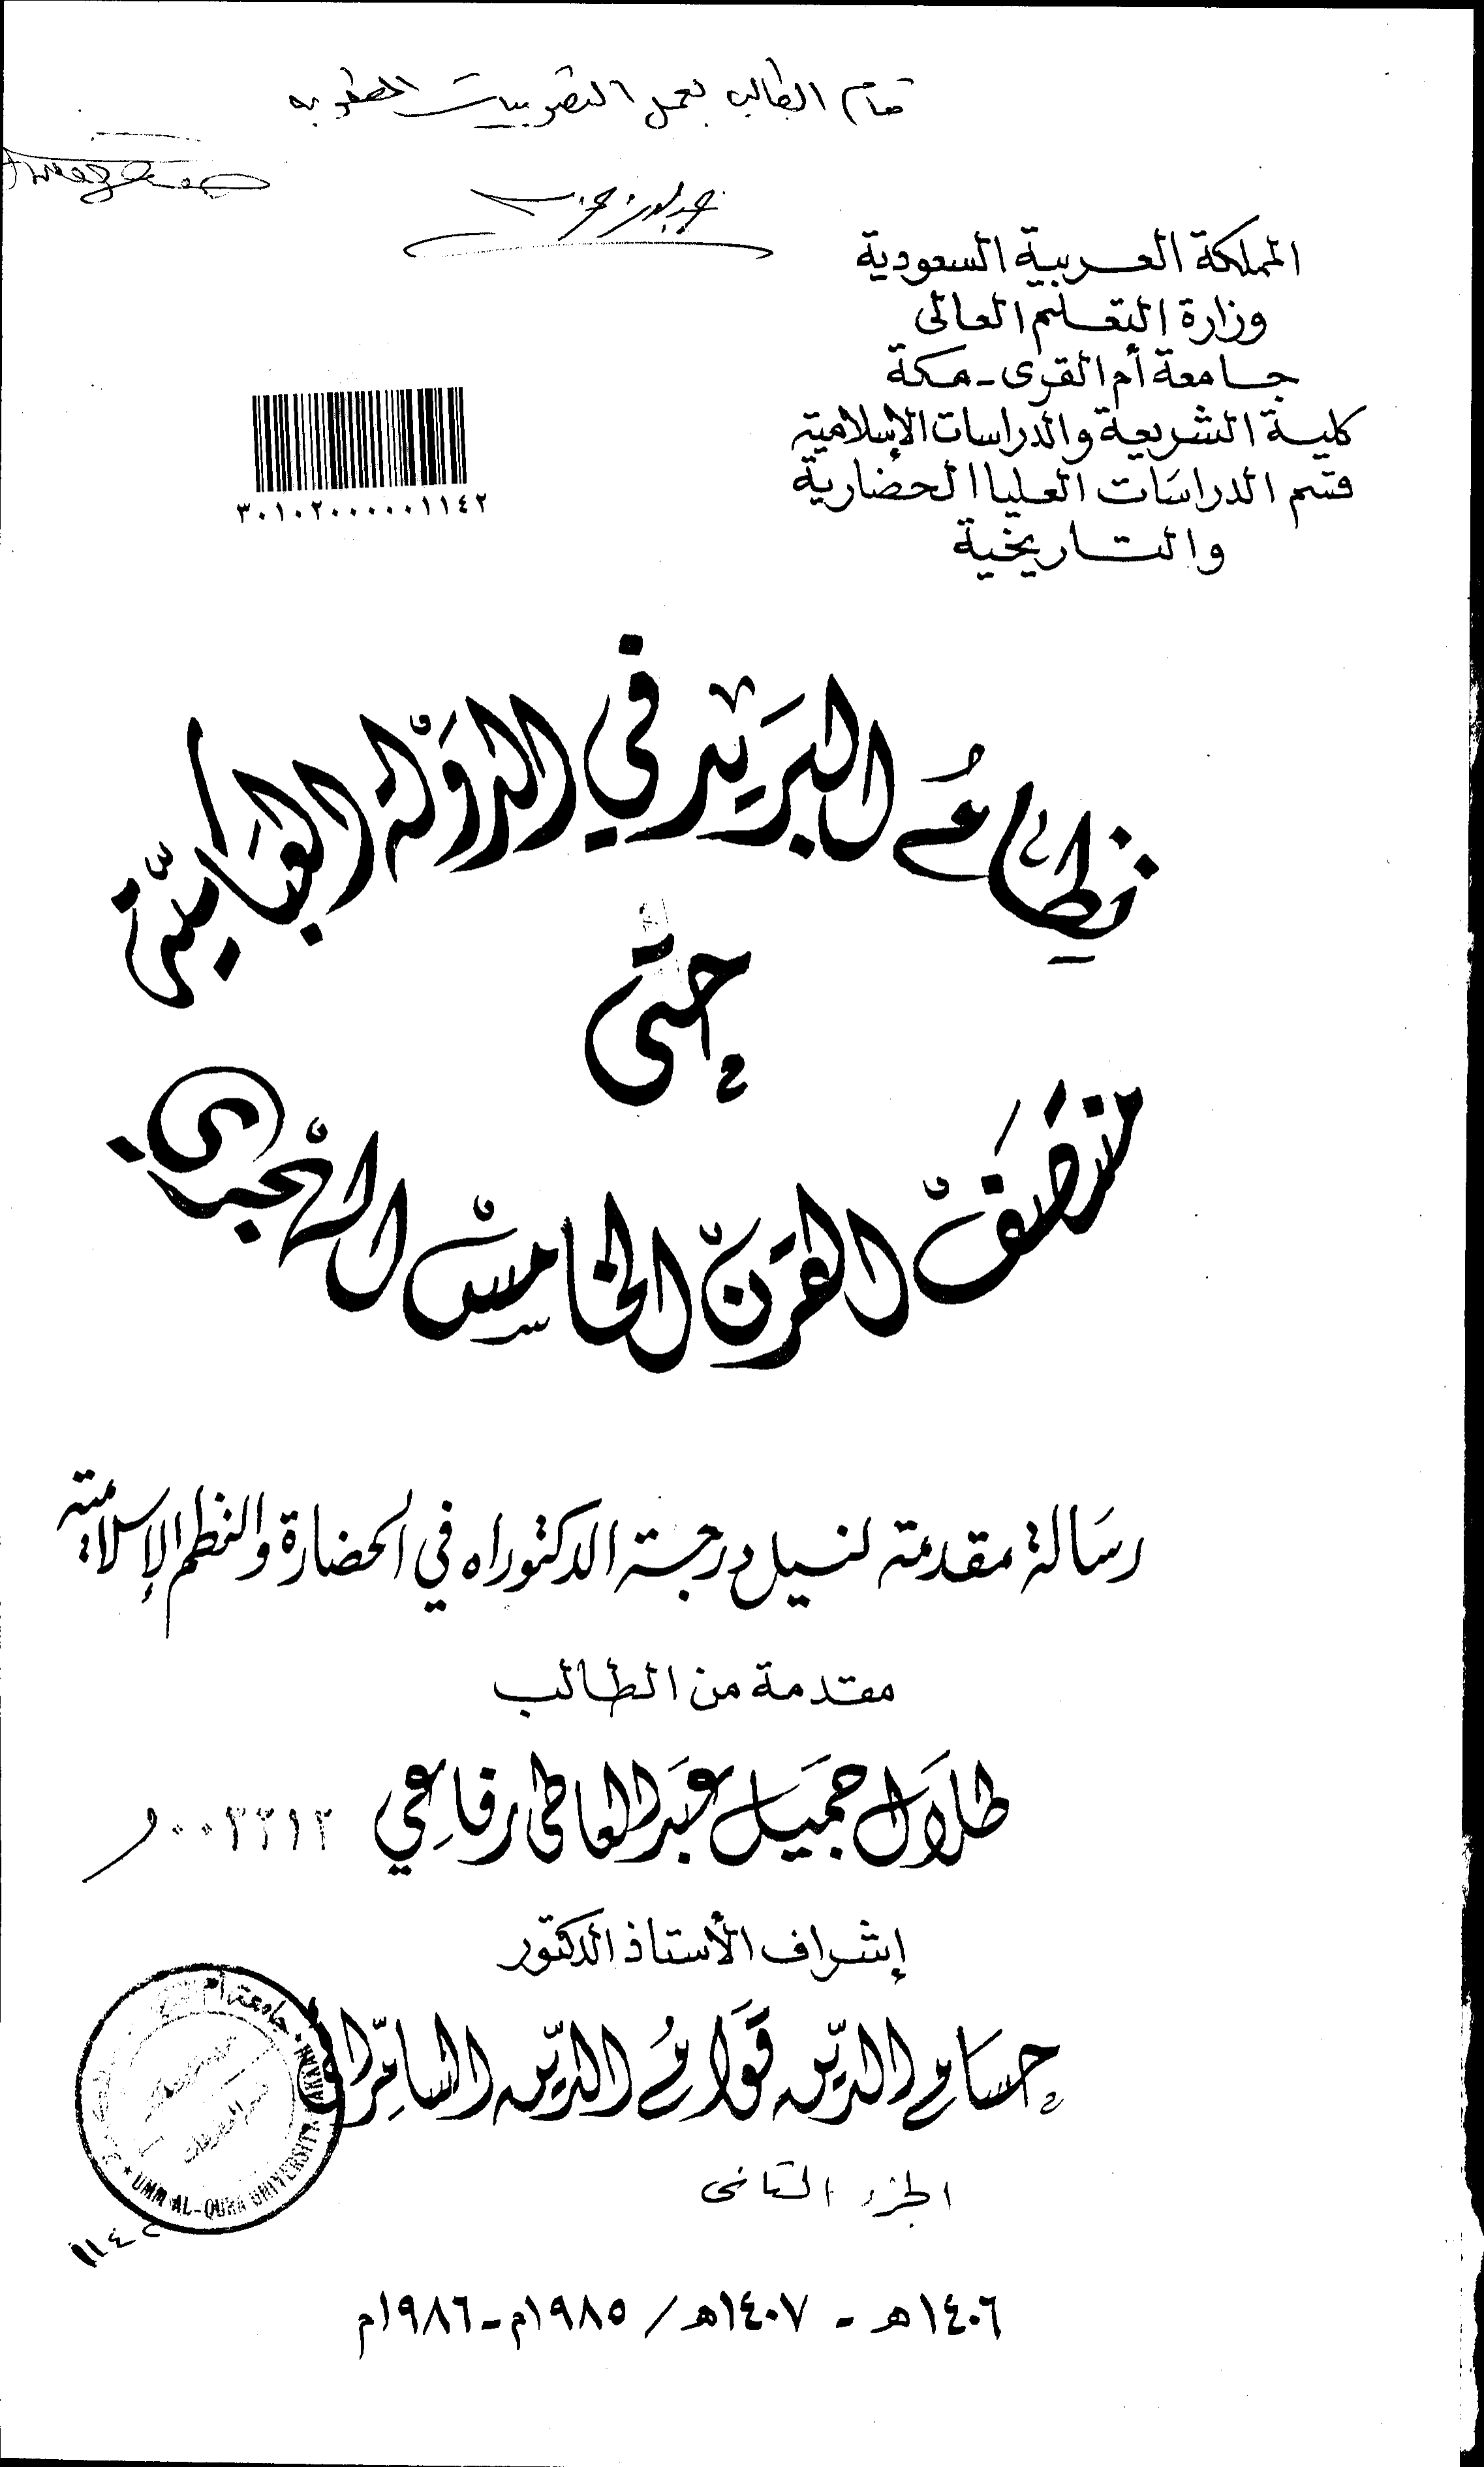 قام الطالب بعمل التصويبات المطلوبة
المملكة العربية السعودية
وزارة التعليم العالى
جامعة أم القرى - مكة
كلية الشريعة والدراسات الإسلامية
قسم الدراسات العليا الحضارية
والتاريخية
٣٠١٠٢٠٠٠٠٠٠١١٤٢
نِظامُ البَرِيْد في الدَّوْلة العَبَّاسِيّة
حتى
منتصَف القرن الخامِسْ الهْجري
رسَالة مقدمة لنيل درجة الدكتوراه في الحضارة والنظم الإسلامية
مقدمة من الطالب
طلَال جميَل عبَد العاطى رفاعِي
٠٠٣٢١٢
إشراف الأستاذ الدكتور
حسَام الدّين قَوامُ الدّين السامِّرائى
جامعة أم
UMM AL-QURA UNIVERSITY MAKKAH
الجزء الثانى
١١٤٢
١٤٠٦ه - ١٤٠٧ه / ١٩٨٥م - ١٩٨٦م